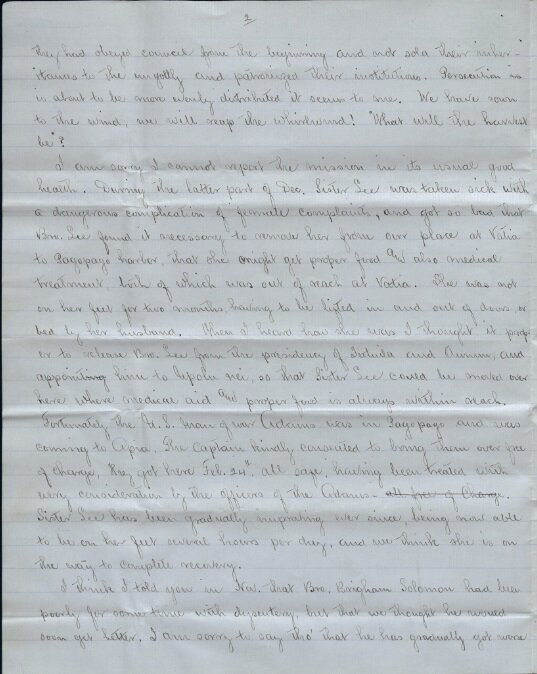 2
they had obeyed council from the beginning and not sold their inher-
itances to the ungodly and patronized their institutions. Persecution is
is about to be more evenly distributed it seems to me. We have sown
to the wind, we will reap the whirlwind! "What will the harvest
be"?
I am sorry I cannot report the mission in its usual good
health. During the latter part of Dec. Sister Lee was taken sick with
a dangerous complication of female complaints, and got so bad that
Bro. Lee found it necessary to remove her from our place at Vatia
to Pagopago harbor, that she might get proper food and also medical
treatment, both of which was out of reach at Vatia. She was not
on her feet for two months, having to be lifted in and out of doors, or
bed by her husband. When I heard how she was I thought it prop-
er to release Bro. Lee from the presidency of Tutuila and Aunuu, and
appointing him to Upolu nei, so that Sister Lee could be moved over
here where medical aid and proper food is always within reach.
Fortunately the U.S. man of war Adams was in Pagopago and was
coming to Apia. The Captain kindly consented to bring them over free
of charge. They got here Feb. 24", all safe, having been treated with
every consideration by the officers of the Adams- all free of Charge.
Sister Lee has been gradually improving ever since, being now able
to be on her feet several hours per day, and we think she is on
the way to complete recovery.
I think I told you in Nov. that Bro. Brigham Solomon had been
poorly for some time with dysentery, but that we thought he would
soon get better. I am sorry to say tho' that he has gradually got worse